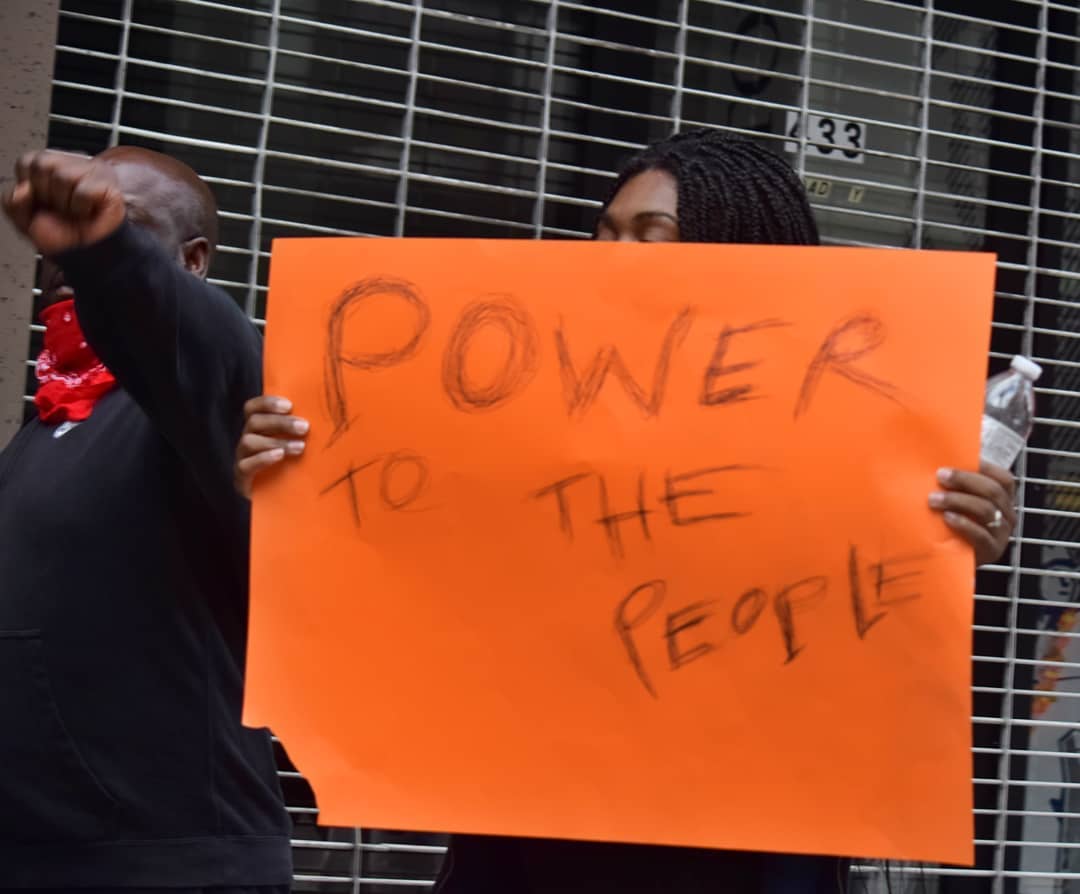 433
AD Y
POWER
TO THE
PEOPLE